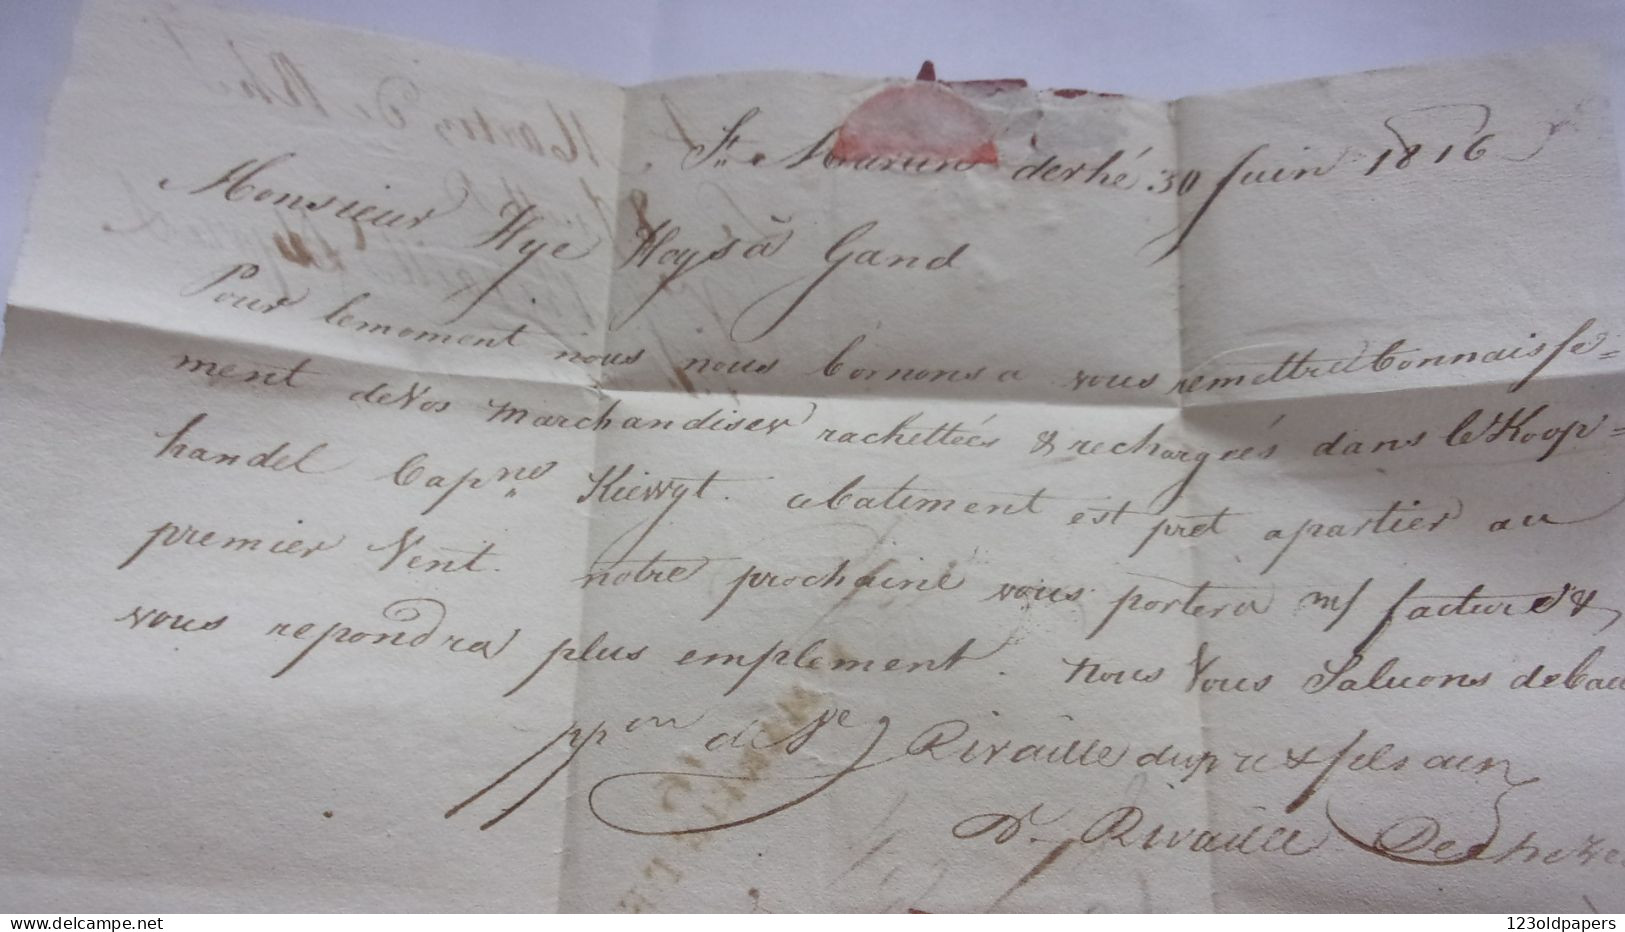 St. Martin derhé 30 Juin 1816
Monsieur Hye Hoys à Gand
Pour lemoment nous nous bornons a vous remettre Connaisse=
ment de Vos marchandises rachettées & rechargées dans le Koop=
handel Capne Kiewyt. cebatiment est prêt apartier au
premier Vent. notre prochaine vous portera facture &
vous repondra plus emplement. nous Vous Saluons debau
ppon de Ve Rivaille dupre & fils ain
Dl Rivaille
123oldpapers